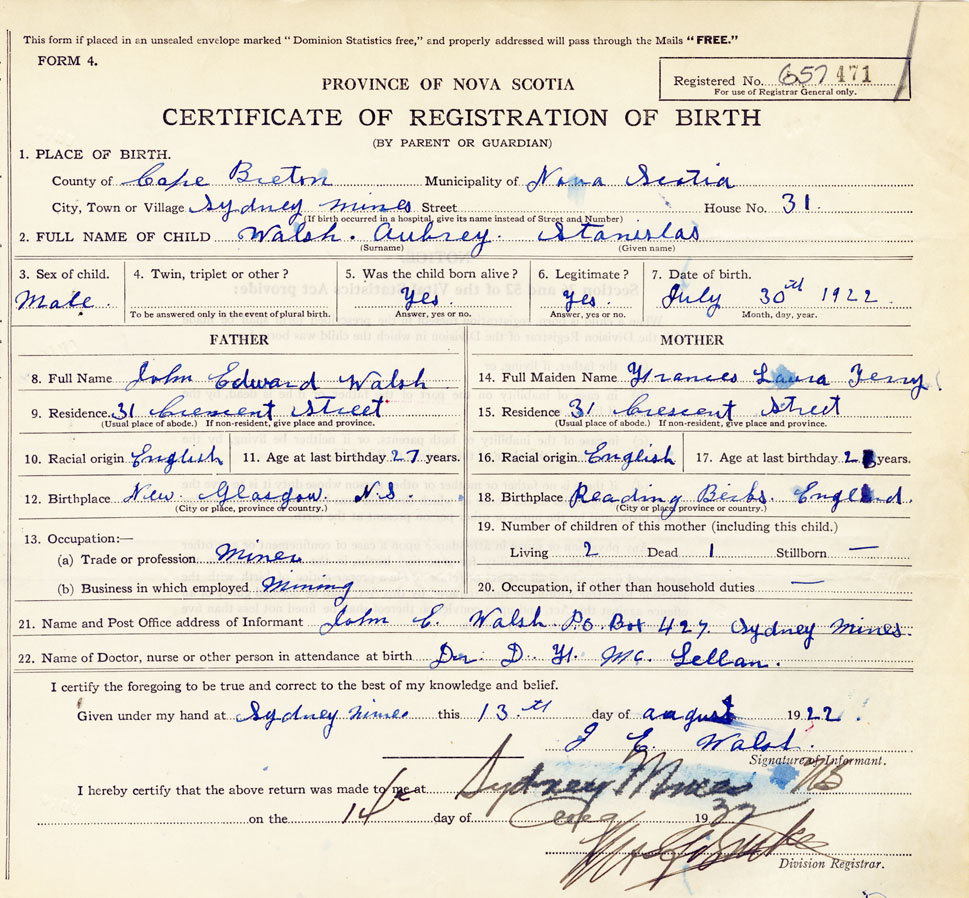 This form if placed in an unsealed envelope marked "Dominion Statistics free," and properly addressed will pass through the Mails "FREE."
FORM 4.
Registered No. 657 471
For use of Registrar General only.
PROVINCE OF NOVA SCOTIA
CERTIFICATE OF REGISTRATION OF BIRTH
(BY PARENT OR GUARDIAN)
1. PLACE OF BIRTH.
County of Cape Breton Municipality of Nova Scotia
City, Town or Village Sydney Mines Street House No. 31.
(If birth occurred in a hospital, give its name instead of Street and Number)
2. FULL NAME OF CHILD Walsh. Aubrey. Stanislas
(Surname) (Given name)
3. Sex of child. 4. Twin, triplet or other? 5. Was the child born alive? 6. Legitimate? 7. Date of birth.
Male. Yes. Yes. July 30th 1922
To be answered only in the event of plural birth. Answer, yes or no. Answer, yes or no. Month, day, year.
FATHER MOTHER
8. Full Name John Edward Walsh 14. Full Maiden Name Frances Laura
9. Residence. 31 Crescent Street 15. Residence 31 Crescent Street
(Usual place of abode.) If non-resident, give place and province. (Usual place of abode.) If non-resident, give place and province.
10. Racial origin English 11. Age at last birthday 27 years. 16. Racial origin English 17. Age at last birthday years.
12. Birthplace New Glasgow. N.S. 18. Birthplace Reading Berks. England.
(City or place, province or country.) (City or place, province or country.)
19. Number of children of this mother (including this child.)
13. Occupation:—
(a) Trade or profession Miner Living 2 Dead 1 Stillborn —
(b) Business in which employed Mining 20. Occupation, if other than household duties —
21. Name and Post Office address of Informant John E. Walsh. P.O. Box 427. Sydney Mines.
22. Name of Doctor, nurse or other person in attendance at birth Dr. D. H. McLellan.
I certify the foregoing to be true and correct to the best of my knowledge and belief.
Given under my hand at Sydney Mines this 13th day of August 1922.
J E. Walsh.
Signature of Informant.
I hereby certify that the above return was made to me at Sydney Mines
on the 14 day of Aug 1922
Division Registrar.